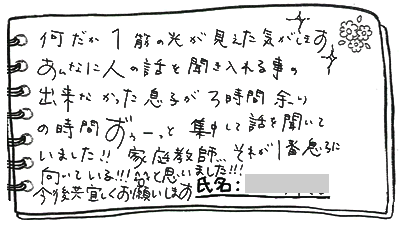 何だか1筋の光が見えた気がします
あんなに人の話を聞き入れる事の
出来なかった息子が3時間余り
の時間ずぅーっと集中して話を聞いて
いました!! 家庭教師…それが1番息子に
向いている!!! 等と思いました!!!
今後共宜しくお願いします 氏名: